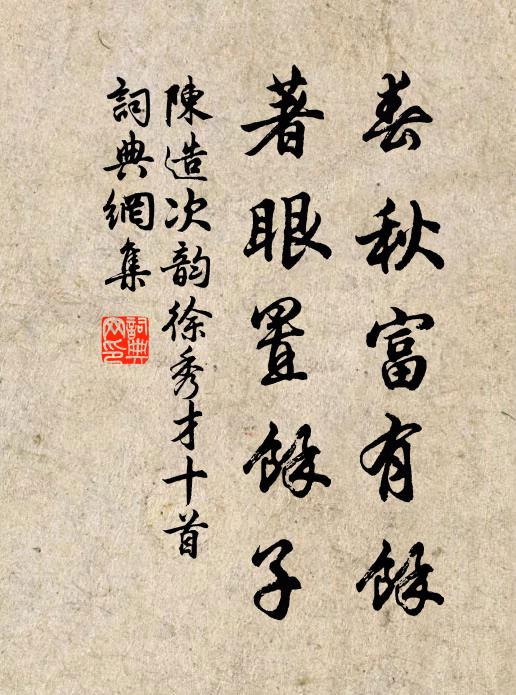 春秋富有餘
著眼置餘子
陳造次韵徐秀才十首
詞典網集
詞典網印